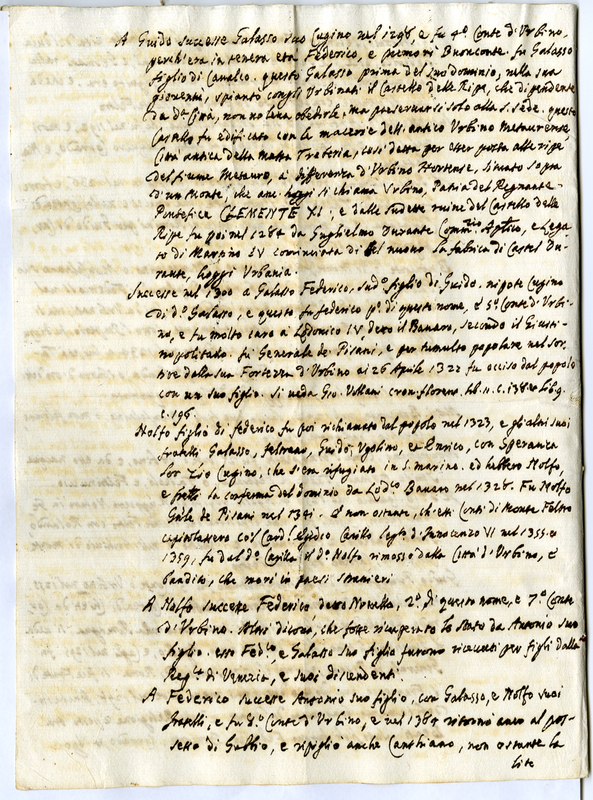 A Guido successe Galasso suo Cugino nel 1298, e fu 4.º Conte d'Urbino,
perch'era in tenera età Federico, e premorì Buonconte. fu Galasso
figlio di Cavalco. questo Galasso prima del suo dominio, nella sua
gioventù, spiantò con gli Urbinati il Castello delle Ripe, che dipendente
da dª Città, non voleva obedirle, ma preservarsi solo alla S. Sede. questo
Castello fu edificato con le macerie dell'antico Urbino Metaurense
Città antica della Massa Trabaria, così detta per esser posta alle ripe
del fiume Metauro, a differenza d'Urbino Hortense, situato sopra
d'un Monte, che anc' hoggi si chiama Urbino, Patria del Regnante
Pontefice CLEMENTE XI; e dalle sudette ruine del Castello delle
Ripe fu poi nel 1284 da Guglielmo Durante Comm.rio Aplico, e Lega
to di Martino IV cominciata di nuovo la fabrica di Castel Du-
rante, hoggi Urbania.
Successe nel 1300 a Galasso Federico, sud.º figlio di Guido. nipote Cugino
di d.º Galasso, e questo fu federico pº. di questo nome, e 5.º Conte d'Urbi-
no, e fu molto caro a Lodovico IV detto il Bavaro, secondo il Giusti-
nopolitano. fu Generale de Pisani, e per tumulto popolare nel sor-
tire dalla sua Fortezza d'Urbino ai 26 Aprile 1322 fu occiso dal popolo
con un suo figlio. Si veda Gio. Villani cron. florens. lib. 11. c. 138 et lib. 9.
c. 196.
Nolfo figlio di federico fu poi richiamato dal popolo nel 1323, e gli altri suoi
fratelli Galasso, feltrano, Guido, Ugolino, et Enrico, con Speranza
lor Zio Cugino, che s'era rifugiato in S. Marino. ed hebbero Nolfo,
e frelli la conferma del dominio da Lod.co Bavaro nel 1328. Fu Nolfo
Gnle de Pisani nel 1341. E non ostante, ch'essi Conti di Monte Feltro
capitolassero co'l Card.l Egidio Carillo legto d'Innocenzo VI nel 1355. e
1359, fu dal d.º Carillo il d.º Nolfo rimosso dalla Città d'Urbino, e
bandito, che morì in paesi stranieri
A Nolfo successe Federico detto Novello, 2.º di questo nome, e 7.º Conte
d'Urbino. Altri dicono, che fosse ricuperato lo stato da Antonio suo
figlio. esso Fed.co, e Galasso suo figlio furono ricevuti per figli dalla
Rep.ca di Venezia, e suoi discendenti.
A Federico successe Antonio suo figlio, con Galasso, e Nolfo suoi
fratelli, e fu 8.º Conte d'Urbino, e nel 1384 ritornò anco al pos-
sesso di Gubbio, e ripigliò anche Canthiano, non ostante la
lite